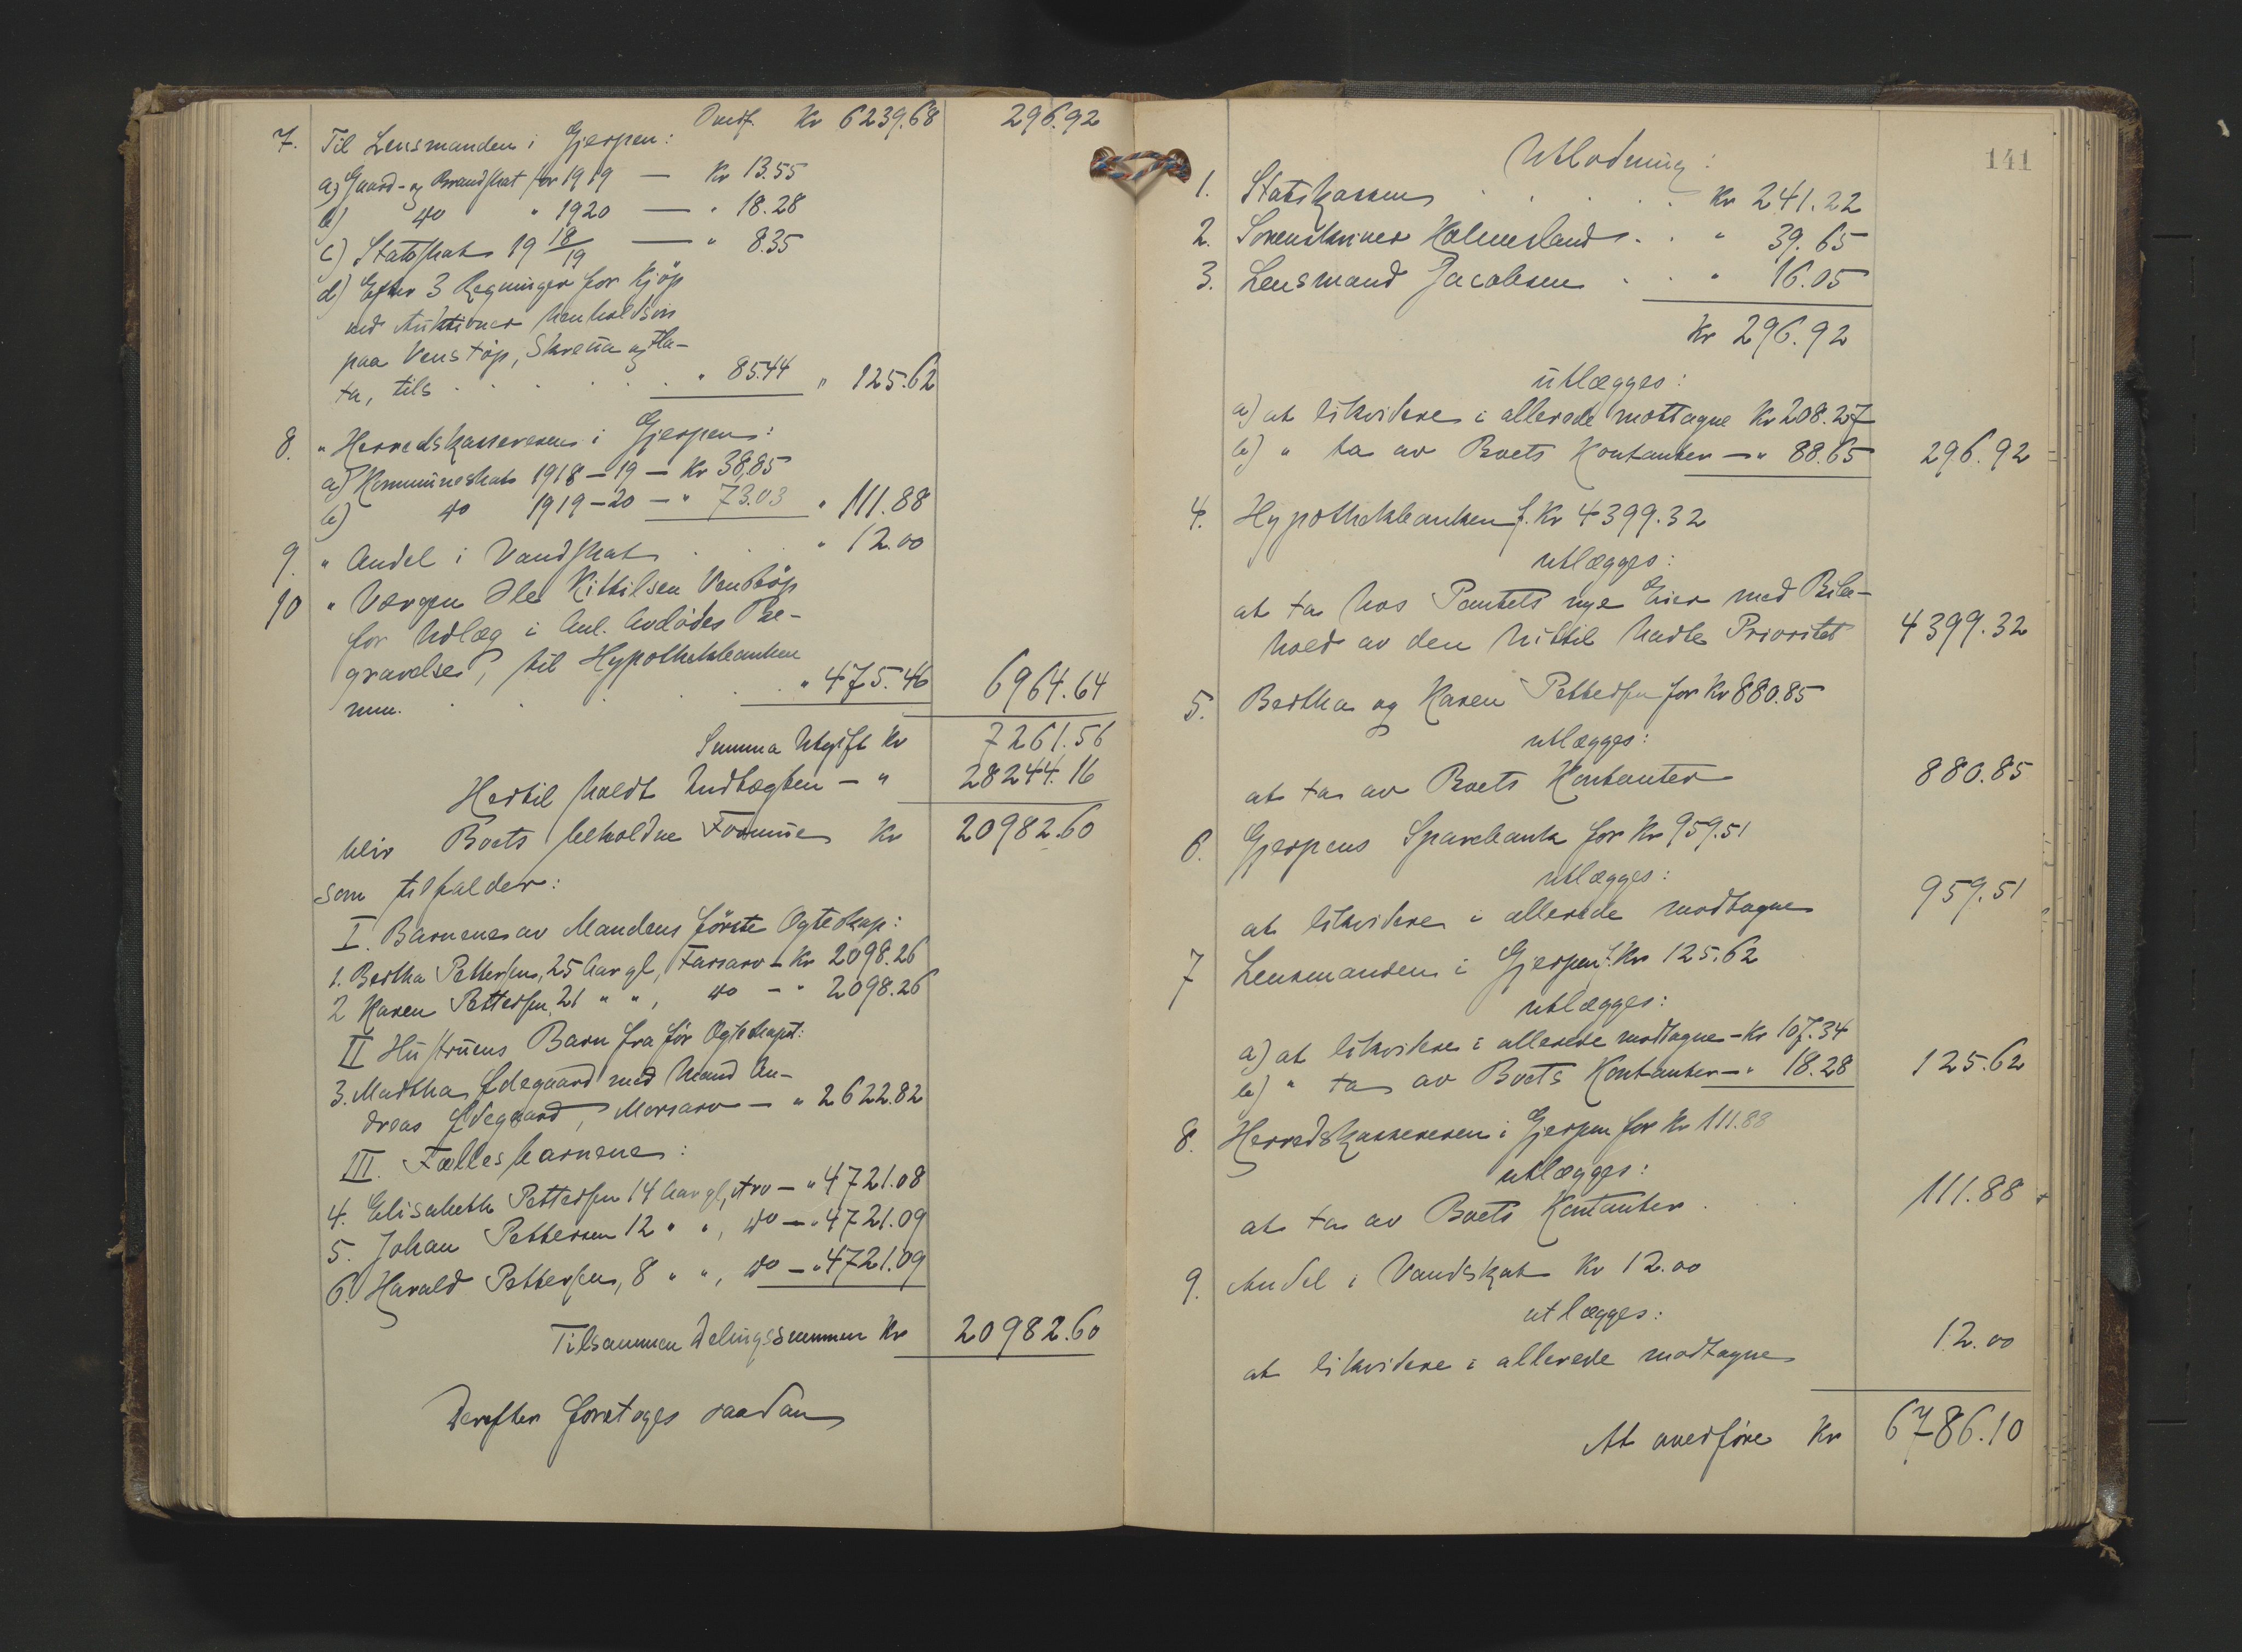 Overf. Kr 6239.68 296.92
7. Til Lensmanden i Gjerpen:
a) Gaard- og Brandskat for 1919 — Kr 13.55
b) do " 1920 — " 18.28
c) Statsskat 19 18/19 — " 8.35
d) Efter 3 Regninger for Kjöp
ved Auktioner henholdsvis
paa Venstöp, Skrena og Ha-
ta, tils . . . . . " 85.44 " 125.62
8. " Herredskassereren i Gjerpen:
a) Kommuneskat 1918–19 – Kr 38.85
b) do 1919–20 – " 73.03 " 111.88
9. " Andel i Vandskat . . . " 12.00
10 " Værgen Ole Kittilsen Venstöp
for Utlæg i Anl. Avdödes Be-
gravelse, til Hypothekbanken
mm. . . . . . " 475.46 6964.64
Summa Utgift Kr 7261.56
Hertil holdt Indtægten – " 28244.16
bliv Boets beholdne Formue Kr 20982.60
som tilfalder:
I. Barnene av Mandens förste Ogteskap:
1. Bertha Pettersen, 25 Aar gl, Farsarv – Kr 2098.26
2 Karen Pettersen, 21 " ", do – " 2098.26
II Hustruens Barn fra för Ogteskapet:
3. Marthа Ødegaard med Mand An-
dreas Ødegaard, Morsarv – " 2622.82
III. Fællesbarnene:
4. Elisabeth Pettersen 14 Aar gl, Arv – " 4721.08
5. Johan Pettersen 12 " ", do – " 4721.09
6. Harald Pettersen, 8 " ", do – " 4721.09
Tilsammen Delingssummen Kr 20982.60
Derefter foretoges saadan
141
Utlodning:
1. Statskassen . . . . Kr 241.22
2. Sorenskriver Holmesland . . " 39.65
3. Lensmand Jacobsen . . " 16.05
Kr 296.92
utlægges:
a) at likvidere i allerede mottagne Kr 208.27
b) " ta av Boets Kontanter – " 88.65 296.92
4. Hypothekbanken f. Kr 4399.32
utlægges:
at ta hos Pantets nye Eier med Bibe-
hold av den hittil hadte Prioritet 4399.32
5. Bertha og Karen Pettersen for Kr 880.85
utlægges:
at ta av Boets Kontanter 880.85
6. Gjerpens Sparebank for Kr 959.51
utlægges:
at likvidere i allerede modtagne 959.51
7 Lensmanden i Gjerpen f. Kr 125.62
utlægges:
a) at likvidere i allerede modtagne – Kr 107.34
b) " ta av Boets Kontanter – " 18.28 125.62
8. Herredskassereren i Gjerpen for Kr 111.88
utlægges:
at ta av Boets Kontanter . . 111.88
9. Andel i Vandskat Kr 12.00
utlægges:
at likvidere i allerede modtagne 12.00
At overföre Kr 6786.10